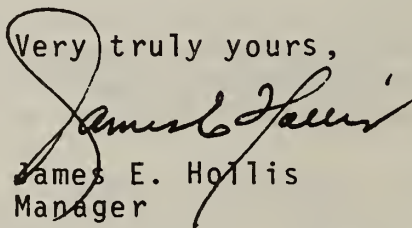 Very truly yours,
James E Hollis
James E. Hollis
Manager